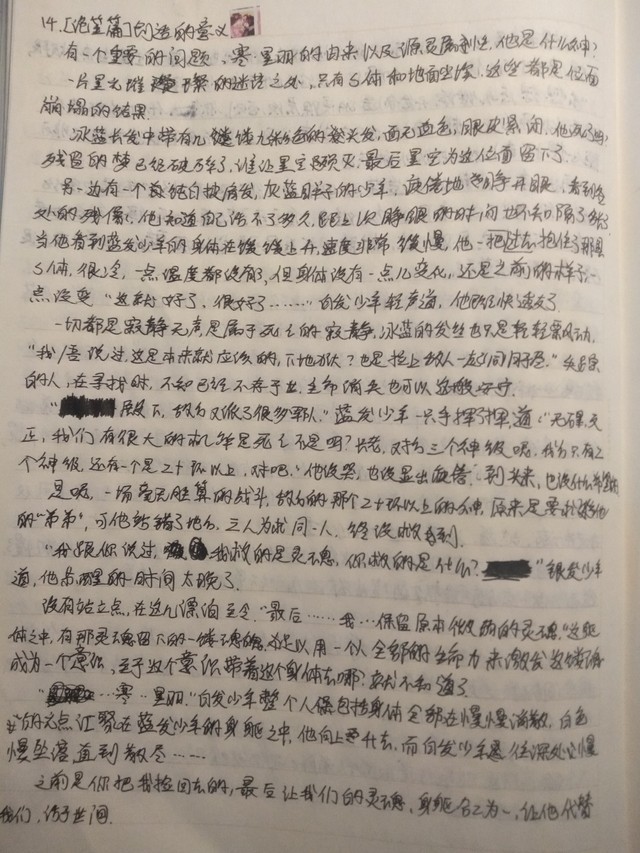 14.[绝笔篇]创造的意义
有一个重要的问题、寒里丽的由来以及源灵属性,他是什么种?
一片星光璀璨的迷茫之处,只有S体和地面尘埃,这些都是位面
崩塌的结果
冰蓝长发中带有几缕的发头发,面无血色,眼皮紧闭,他死了吗
残留的梦已经破碎了,谁让星空毁灭,最后星空为这位面留下了。
另一边有一个纯白披肩发,灰蓝眸子的少年,疲倦地睁开眼,看到
处的残像,他知道自己活不了多久,距上次睁眼的时间也不知隔了
当他看到蓝发少年的身体在缓缓上升,速度非常缓慢,他一把过去抱住了那具
S体,很冷,一点温度都没有了,但身体没有一点儿变化,还是之前的样子,一
点没变“这就好了、很好了……”白发少年轻声道,他已经快没了
一切都是寂静无声是属于死亡的寂静,冰蓝的发丝也只是轻轻飘动,
“我/吾说过,这是本来就应该的,下地狱?也是拉上敌人一起
的人,在寻找时,不知已经不存于世,生命消失也可以这般安宁.
“殿下,敌方又派了很多部队。”蓝发少年一只手挥了挥道:“无碍,反
正,我们有很大的机率是死亡不是吗?长老,对方三个神级呢,我方只有2
个神级,还有一个是20环以上,对吧。”他没哭,也没显出疲倦,到头来,也没什么
是呢,一场毫无胜算的战斗,敌方的那个20环以上的种,原来是要
的“弟弟”,可他站错了地方,三人为救同一人,终没救到
“我跟你说过,我救的是灵魂,你救的是什么?”银发少年
道,他苏醒的时间太晚了.
没有站立点,在这儿漂泊至今.“最后……我…保留原本做的灵魂.”这躯
体之中,有那灵魂留下的一缕魂魄,足以用一个人全部的生命力来激发这缕魂
成为一个意识,至于这个意识带着这个身体去哪?就不知道了
“…寒…里丽.”白发少年整个人保包括身体全部在慢慢消散,白色
的光点汇聚在蓝发少年的身躯之中,他向上升去,而白发少年往深处
慢坠落直到散尽……
之前是你把我捡回去的,最后让我们的灵魂、身躯合二为一,让他代替
我们,活于世间.